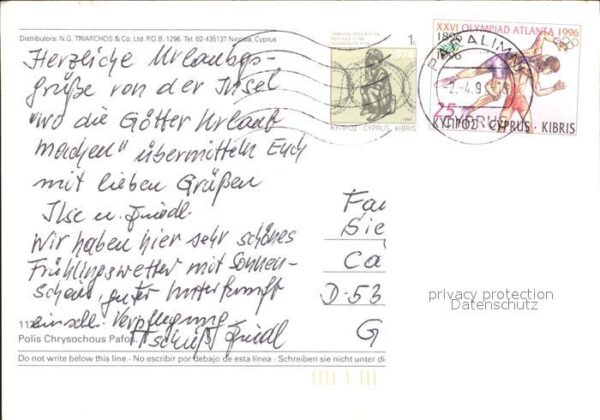 Distributors: N.G. TRIARCHOS & Co. Ltd. P.O.B. 1296. Tel. 02-435137 Nicosia, Cyprus
Herzliche Urlaubs-
grüße von der Insel
"wo die Götter Urlaub
machen" übermitteln Euch
mit lieben Grüßen
Ilse u. Friedl.
Wir haben hier sehr schönes
Frühlingswetter mit Sonnen-
schein, guter Unterkunft
einschl. Verpflegung
Tschüß Friedl
11
Polis Chrysochous Pafos.
Do not write below this line - No escribir por debajo de esta linea - Schreiben sie nicht unter di
1c
1974
ΚΥΠΡΟΣ CYPRUS KIBRIS
XXVI OLYMPIAD ATLANTA 1996
1896
1996
25
ΚΥΠΡΟΣ · CYPRUS · KIBRIS
PARALIMNI
-2.-4.9
CYPRUS
Fa
Sie
Ca
D-53
G
privacy protection
Datenschutz